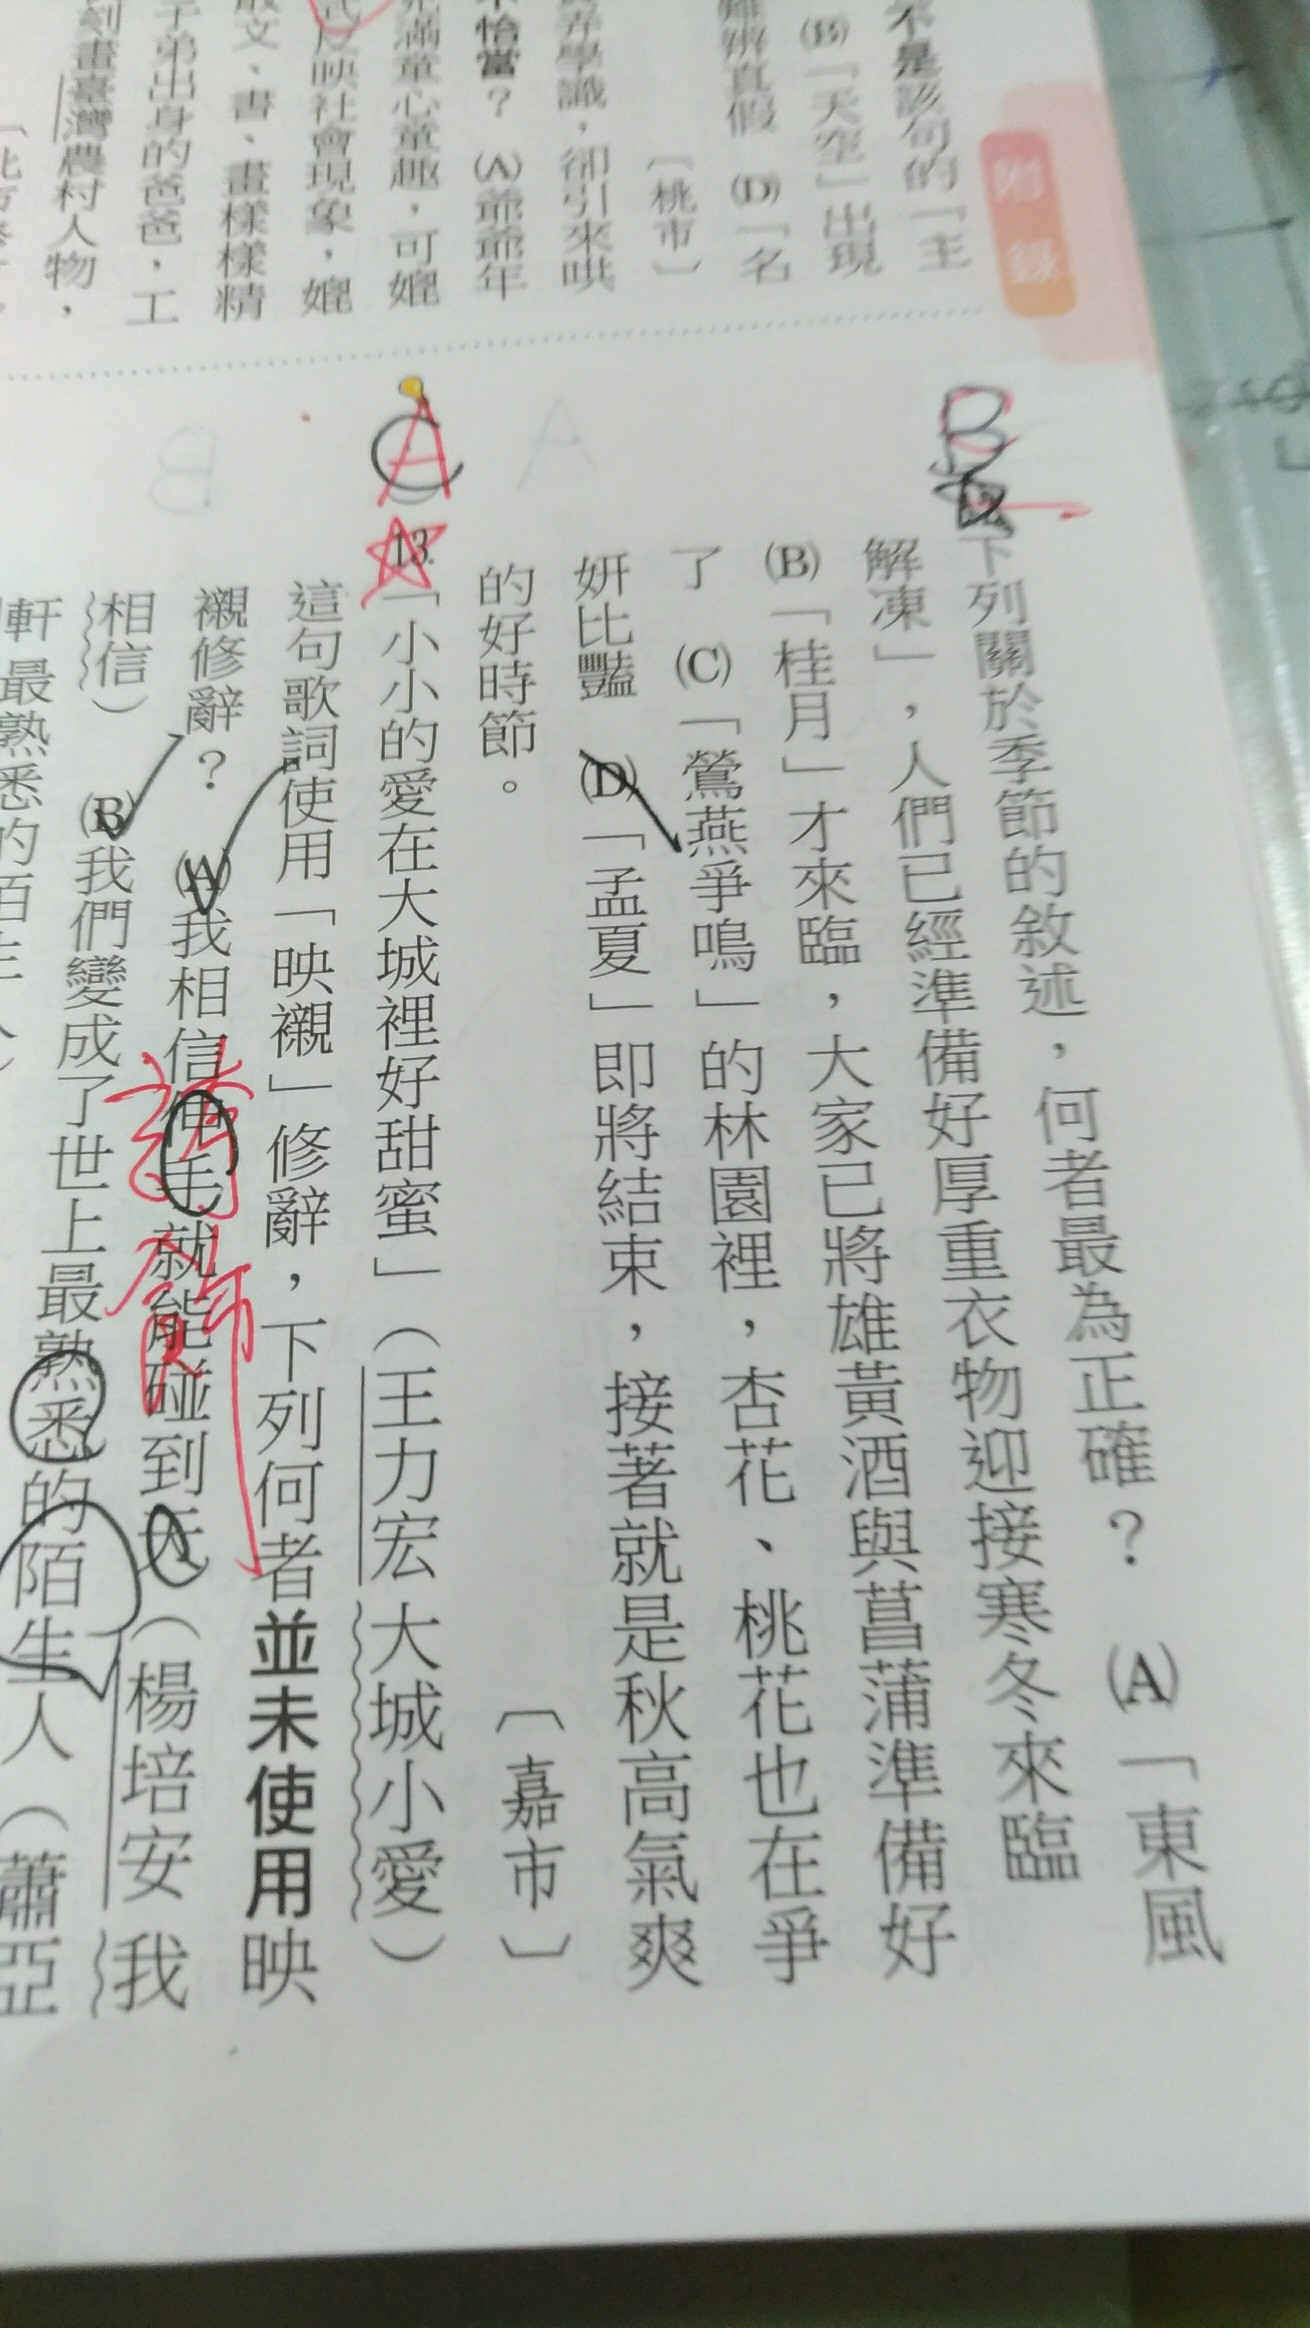 附錄
不是該句的「主
(B)「天空」出現
難辨真假　(D)「名
〔桃市〕
弄學識，卻引來哄
不恰當？　(A)爺爺年
充滿童心童趣，可媲
式反映社會現象，媲
散文、書、畫樣樣精
子弟出身的爸爸，工
刻畫臺灣農村人物，
B
下列關於季節的敘述，何者最為正確？　(A)「東風
解凍」，人們已經準備好厚重衣物迎接寒冬來臨
(B)「桂月」才來臨，大家已將雄黃酒與菖蒲準備好
了　(C)「鶯燕爭鳴」的林園裡，杏花、桃花也在爭
妍比豔　(D)「孟夏」即將結束，接著就是秋高氣爽
的好時節。　〔嘉市〕
A
13.「小小的愛在大城裡好甜蜜」（王力宏 大城小愛）
這句歌詞使用「映襯」修辭，下列何者並未使用映
襯修辭？　(A)我相信伸手就能碰到天（楊培安 我
相信）　(B)我們變成了世上最熟悉的陌生人（蕭亞
軒 最熟悉的陌生人）